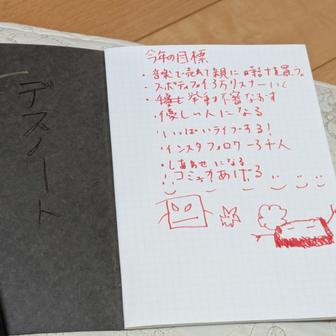 デスノート
今年の目標
・音楽で売れて親に時計を買う。
・スポティファイ3万リスナーいく
・挙動不審なおす
・優しい人になる
・いっぱいライブする!
・インスタフォロワー3千人
・しあわせになる
コミュ力あげる